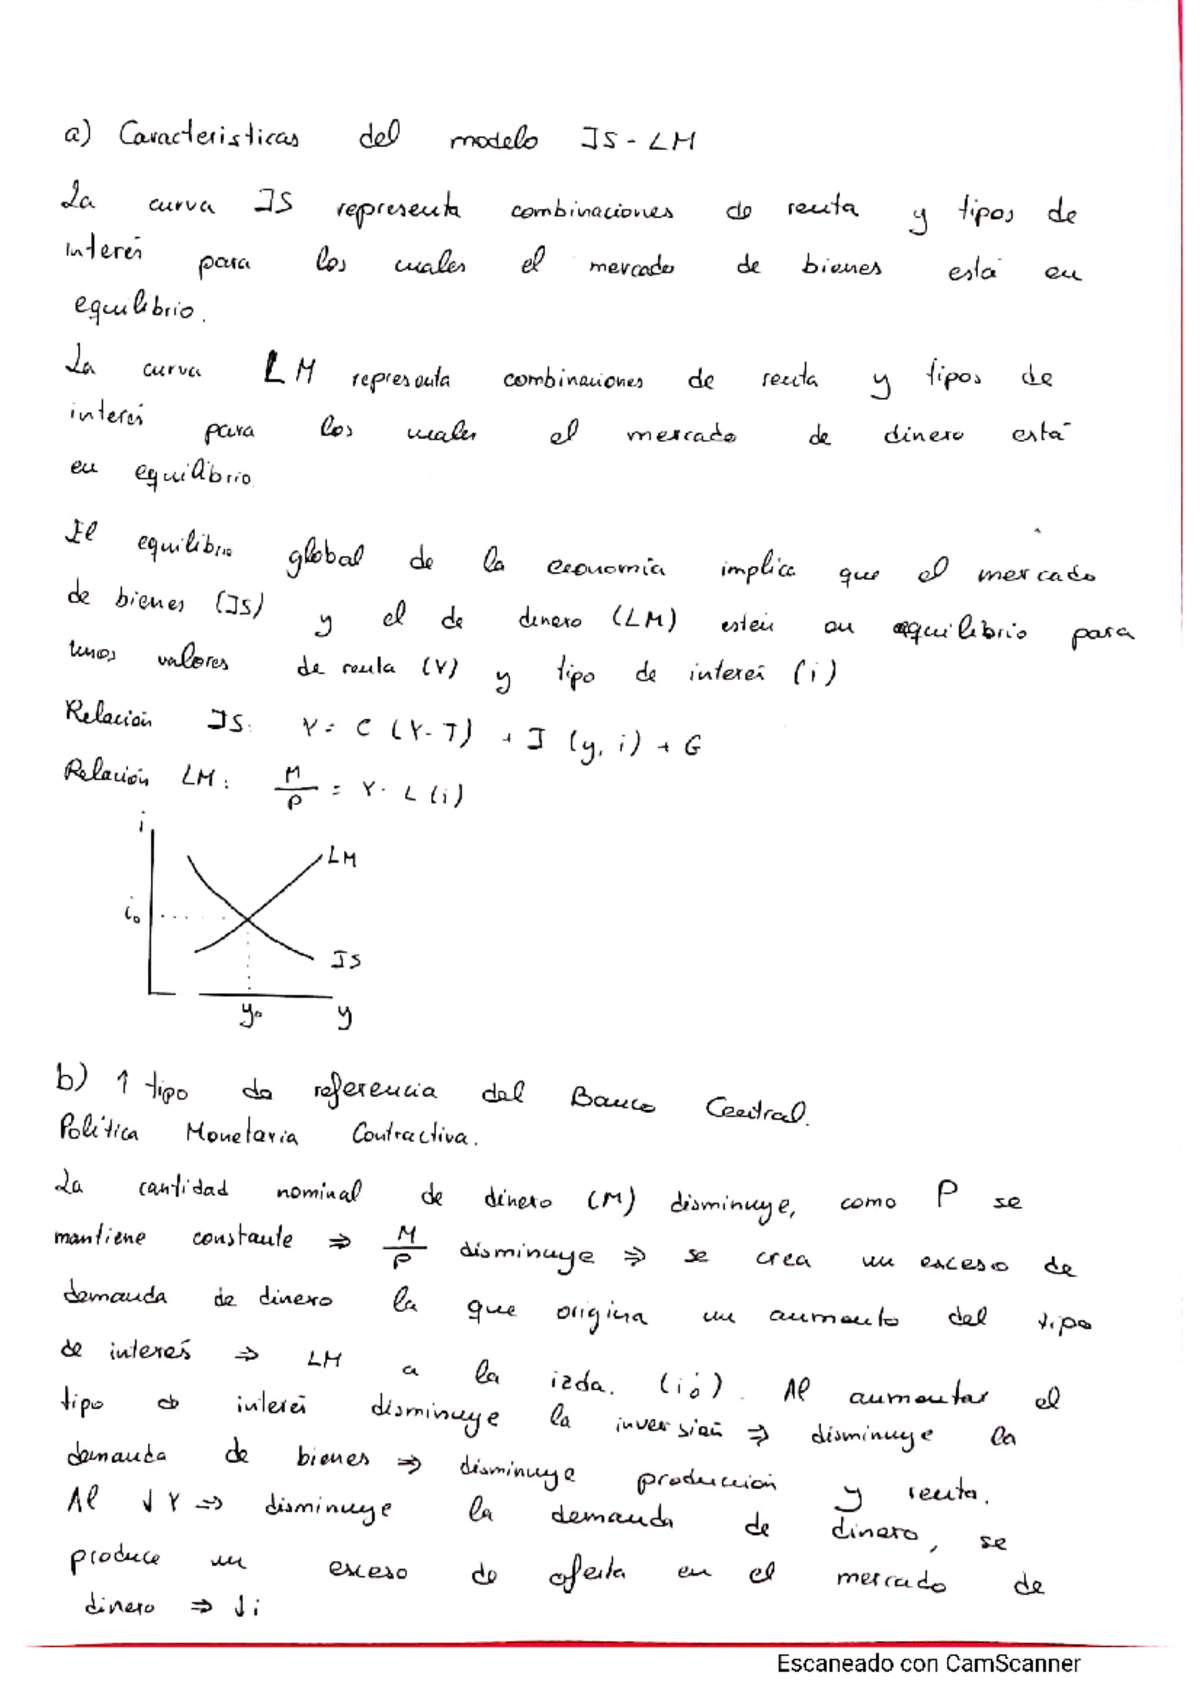 a) Caracteristicas del modelo IS-LM
La curva IS representa combinaciones de renta y tipos de
interés para los cuales el mercado de bienes está en
equilibrio.
La curva LM representa combinaciones de renta y tipos de
interés para los cuales el mercado de dinero está
en equilibrio.
El equilibrio global de la economía implica que el mercado
de bienes (IS) y el de dinero (LM) estén en equilibrio para
unos valores de renta (Y) y tipo de interés (i)
Relación IS: Y = C (Y-T) + I (y, i) + G
Relación LM: M/P = Y · L (i)
i
LM
i₀
IS
y₀ y
b) ↑ tipo de referencia del Banco Central.
Política Monetaria Contractiva.
La cantidad nominal de dinero (M) disminuye, como P se
mantiene constante ⇒ M/P disminuye ⇒ se crea un exceso de
demanda de dinero la que origina un aumento del tipo
de interés ⇒ LM a la izda. (i₀'). Al aumentar el
tipo de interés disminuye la inversión ⇒ disminuye la
demanda de bienes ⇒ disminuye producción y renta.
Al ↓ Y ⇒ disminuye la demanda de dinero, se
produce un exceso de oferta en el mercado de
dinero ⇒ ↓ i
Escaneado con CamScanner